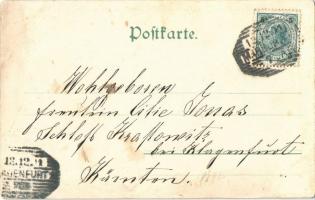 Postkarte.
Wohlgeboren
Fräulein Cilie Jonas
Schloß
bei Klagenfurt
Kärnten.
13.12.
AGENFURT